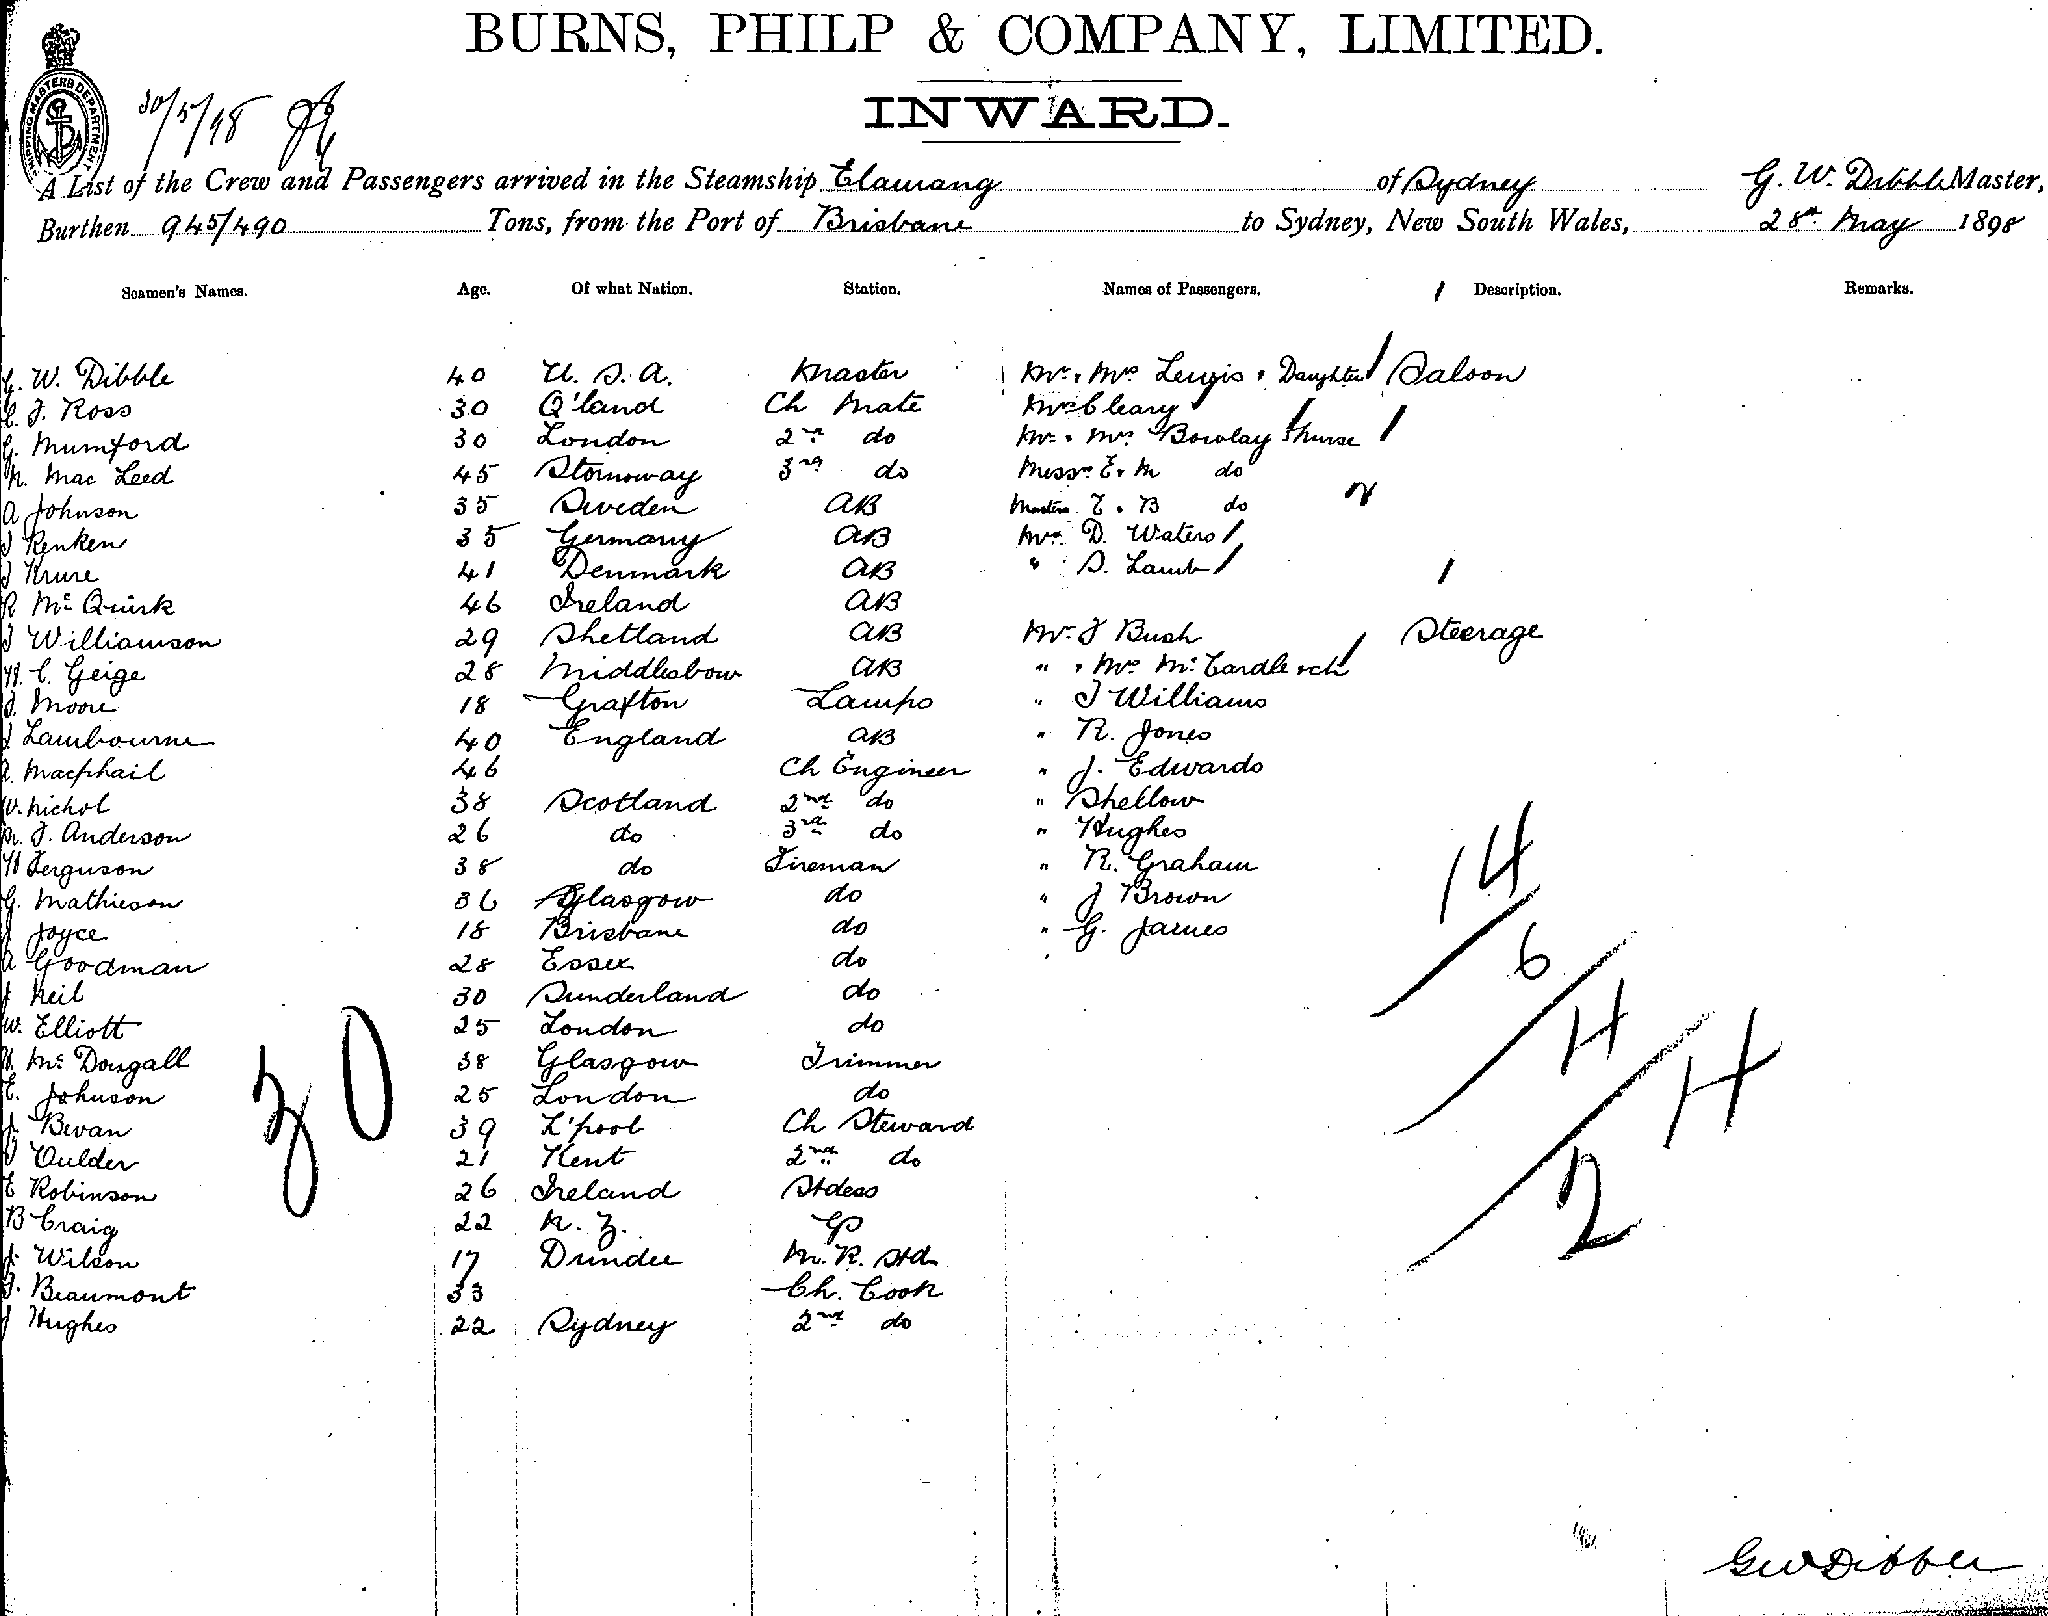 BURNS, PHILP & COMPANY, LIMITED.
INWARD.
SHIPPING MASTERS DEPARTMENT
30/5/98
A List of the Crew and Passengers arrived in the Steamship Elamang of Sydney G. W. Dibble Master,
Burthen 945/490 Tons, from the Port of Brisbane to Sydney, New South Wales, 28th May 1898
Seamen's Names. Age. Of what Nation. Station. Names of Passengers. Description. Remarks.
G. W. Dibble 40 U. S. A. Master Mr. & Mrs Lewis & Daughter Saloon
C. J. Ross 30 Q'land Ch Mate Mrs Cleary
G. Mumford 30 London 2nd do Mr. & Mrs. Bowlay & nurse
N. Mac Leod 45 Stornoway 3rd do Messrs E. & M do
A Johnson 35 Sweden AB Masters E. & B do 2
J Renken 35 Germany AB Mrs. D. Waters
J Kruse 41 Denmark AB " S. Lamb
R McQuirk 46 Ireland AB
J Williamson 29 Shetland AB Mr. J Bush Steerage
H. C. Geige 28 Middlesbow AB " & Mrs McCardle & ch
J. Moore 18 Grafton Lamps " J Williams
J Lambourne 40 England AB " R. Jones
A. Macphail 46 Ch Engineer " J. Edwards
W. Nichol 38 Scotland 2nd do " Shellow
R. J. Anderson 26 do 3rd do " Hughes
H Ferguson 38 do Fireman " R. Graham
G. Mathieson 36 Glasgow do " J Brown
J Joyce 18 Brisbane do " G. James
A Goodman 28 Essex do
J Neil 30 Sunderland do
W. Elliott 25 London do
McDougall 38 Glasgow Trimmer
E. Johnson 25 London do
J. Bevan 39 L'pool Ch Steward
Oulder 21 Kent 2nd do
E Robinson 26 Ireland Stdess
B Craig 22 N. Z. GP
J. Wilson 17 Dundee M. R. Std
J. Beaumont 33 Ch. Cook
J Hughes 22 Sydney 2nd do
30
14
6
4
4
2
GW Dibble